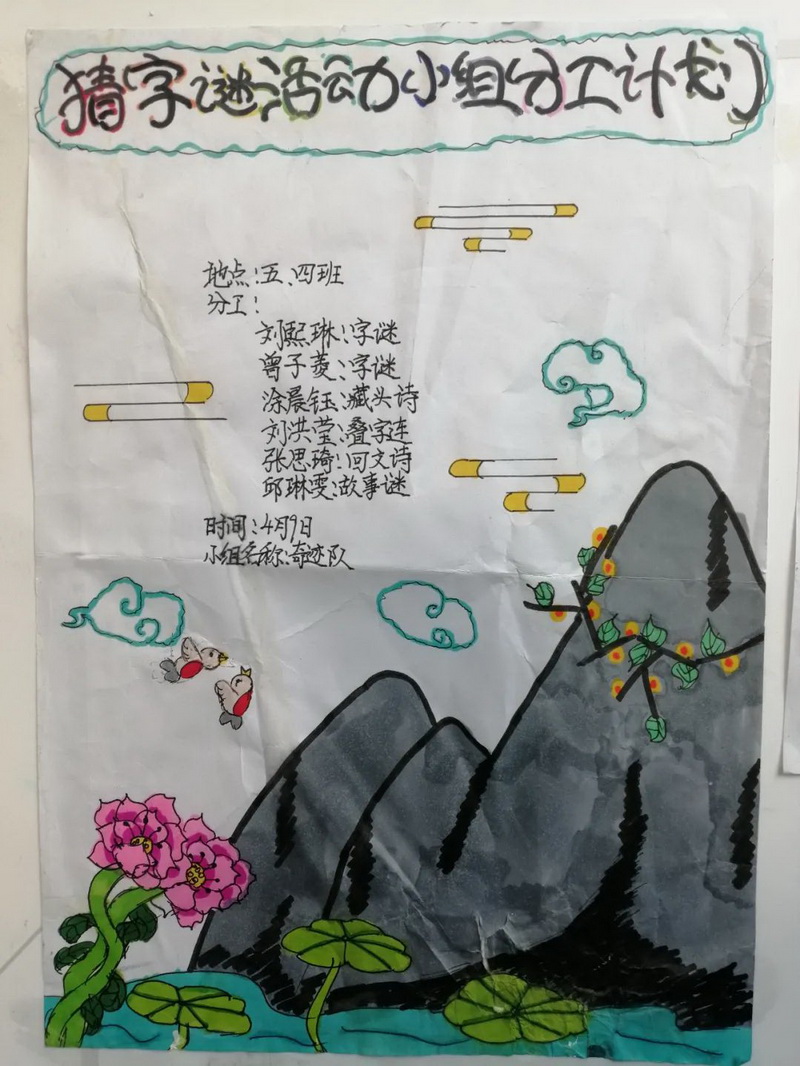 猜字谜活动小组分工计划
地点:五、四班
分工:
刘熙琳:字谜
曾子菱:字谜
涂晨钰:藏头诗
刘洪莹:叠字连
张思琦:回文诗
邱琳雯:故事谜
时间:4月9日
小组名称:奇迹队